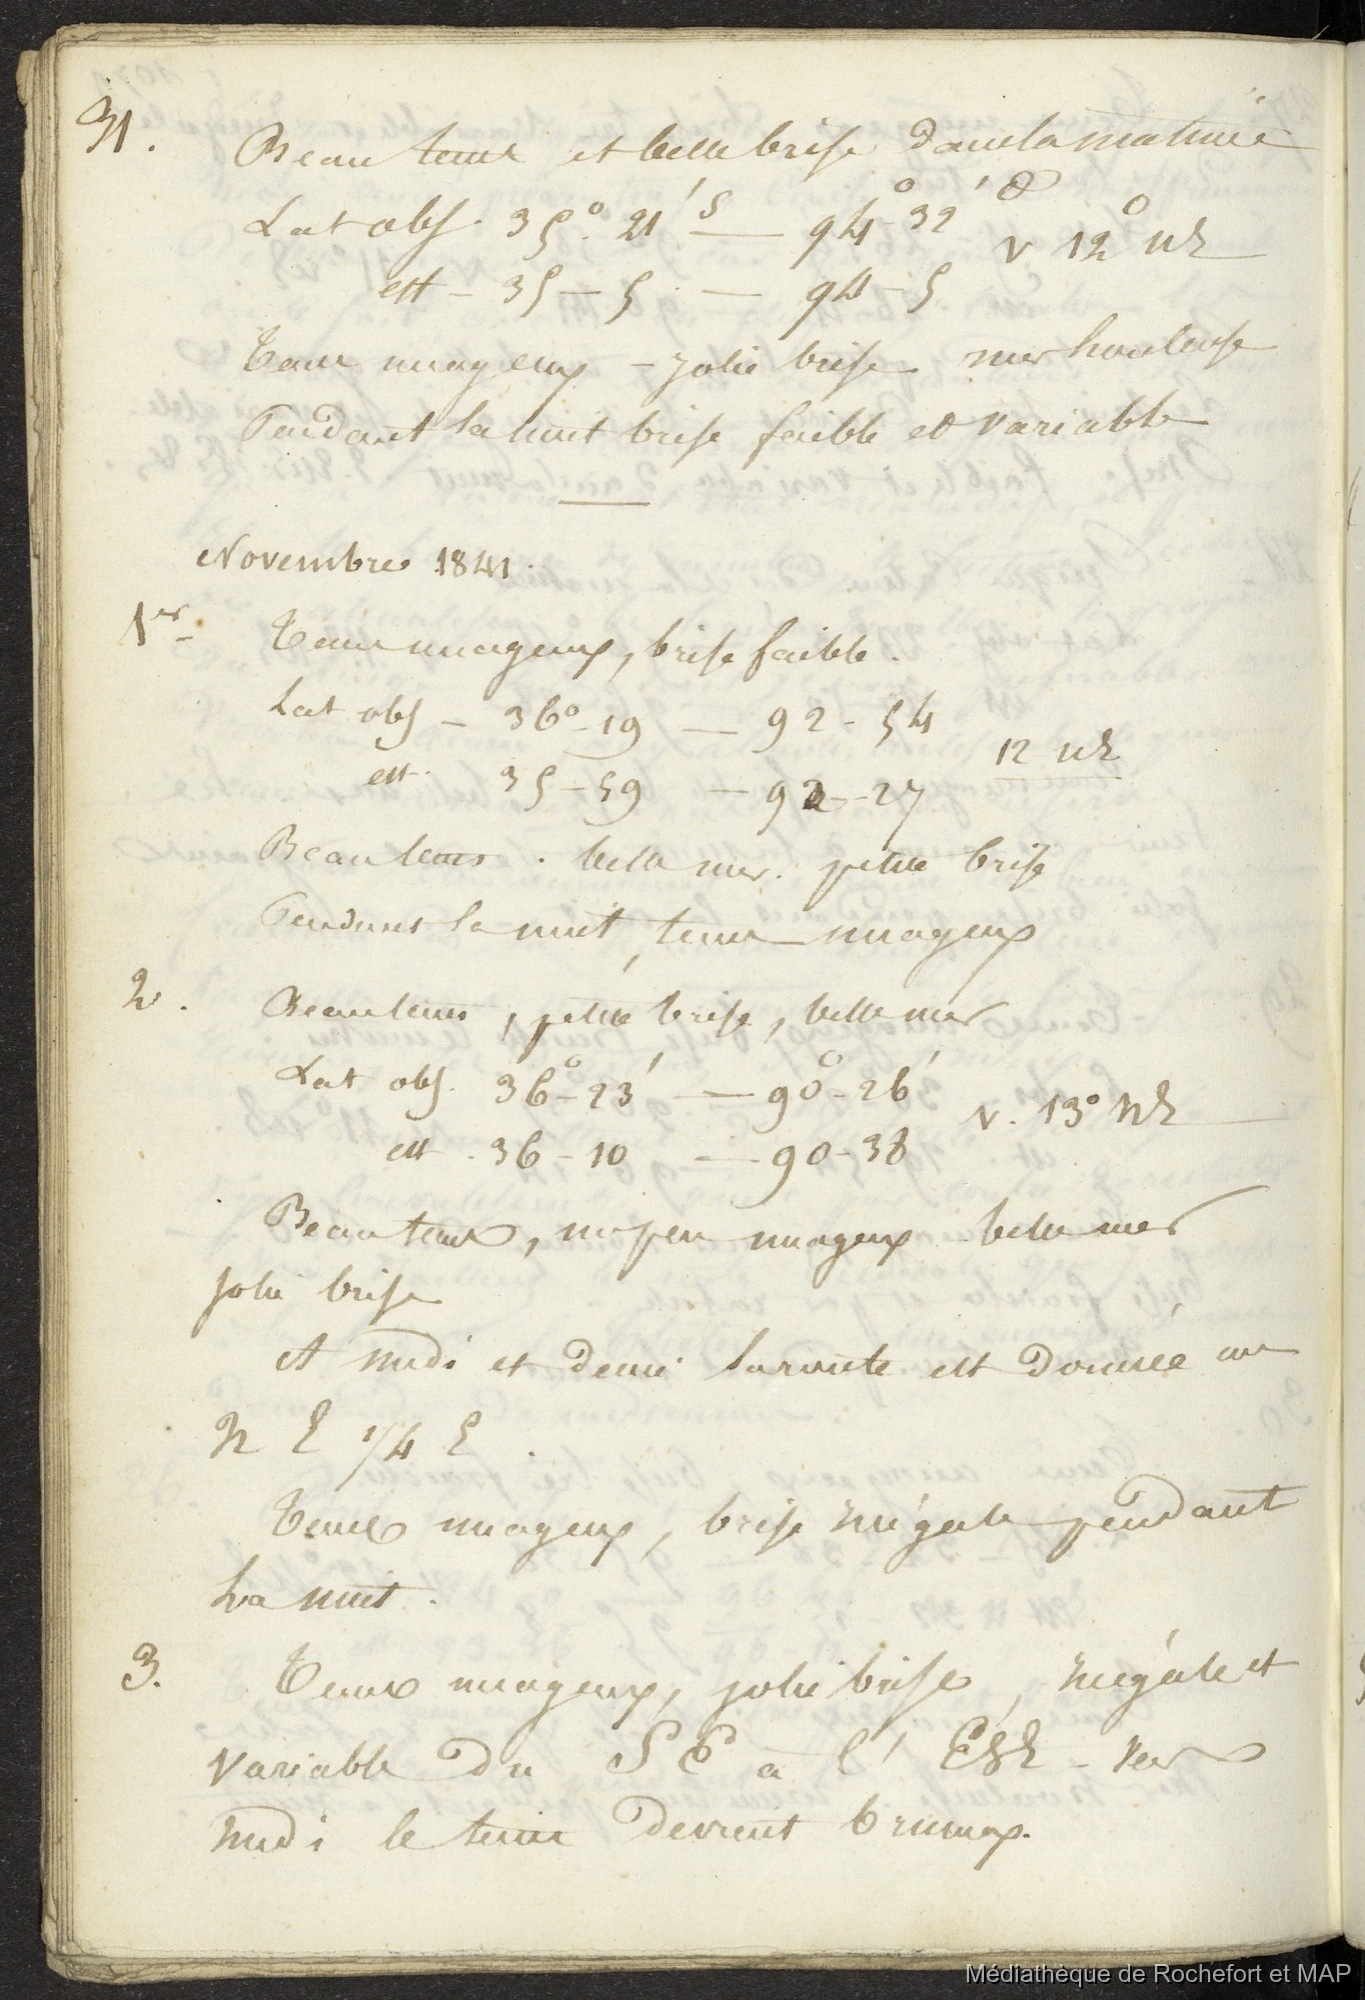 31. Beau tems et belle brise dans la matinée
Lat obs. 35° 21' S — 94° 32' O
v 12° NE
est - 35 - 5 — 94 - 5
Tems nuageux - jolie brise mer houleuse
Pendant la nuit brise faible et variable
Novembre 1841.
1er Tems nuageux, brise faible.
Lat obs - 36° - 19 — 92 - 54
12 NE
est. 35 - 59 — 92 - 27
Beau tems. belle mer. petite brise
Pendant la nuit, tems nuageux
2. Beau tems, petite brise, belle mer
Lat obs. 36° - 23' — 90° - 26'
v. 13° NE
est. 36 - 10 — 90 - 38
Beau tems, un peu nuageux belle mer
jolie brise
A midi et demi la route est donnée au
N E 1/4 E.
Tems nuageux, brise inégale pendant
la nuit.
3. Tems nuageux, jolie brise, inégale et
variable du S E à l' ESE - Vers
midi le tems devient brumeux.
Médiathèque de Rochefort et MAP